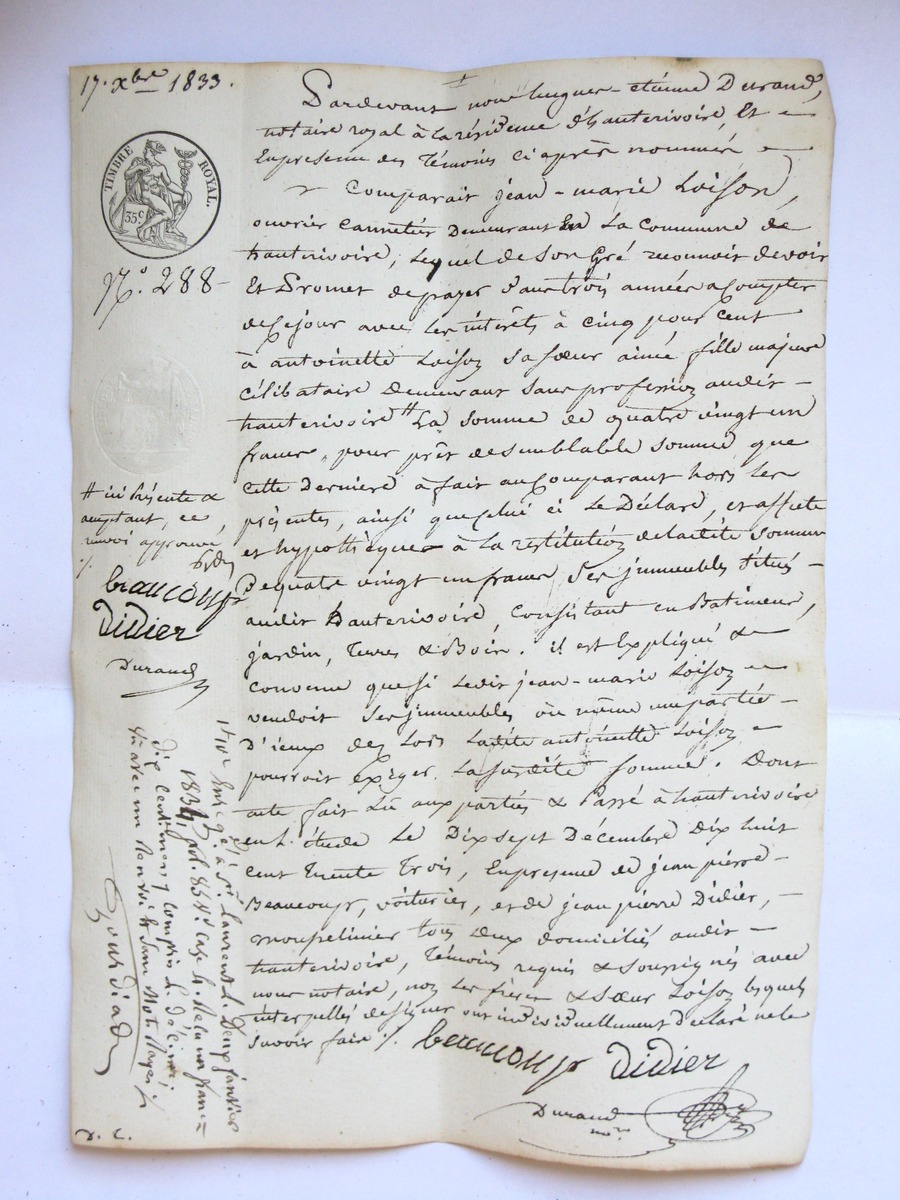 17. xbre 1833.
TIMBRE ROYAL.
35c
N.o 288-
Pardevant nous hugues-etienne Durand,
notaire royal à la résidence d'hauterivoire, Et
En presence des témoins ci après nommés
Comparait jean-marie Loison,
ouvrier demeurant En La Commune de
hauterivoire, Lequel de son Gré reconnoit devoir
Et Promet de payer dans trois années a Compter
de ce jour avec les intérêts à cinq pour cent
à antoinette Loison sa sœur ainée fille majeure
célibataire demeurant sans profession audit
hauterivoire # La somme de quatre vingt un
francs, pour prêt de semblable somme que
cette Dernière à fait au Comparant hors les
présentes, ainsi que celui ci Le Déclare, et affecte
et hypothèque à la restitution de ladite somme
De quatre vingt un francs Ses jmmeubles situés
audit hauterivoire, Consistant en Batimens,
jardin, Terres & Bois. il est Expliqué &
convenu que si Ledit jean-marie Loison
vendoit Ses jmmeubles ou même une partie
D'iceux dez Lors Ladite antoinette Loison
pourroit éxiger La susdite somme. Dont
acte fait Lu aux parties & Passé à hauterivoire
en L'étude Le Dix sept Décembre Dix huit
cent trente trois, En presence de jean pierre
Beaucoup, voiturier, et de jean pierre Didier,
tous deux domiciliés audit
hauterivoire, Témoins requis & soussignés avec
nous notaire, non Les frère & sœur Loison lesquels
interpellés de signer ont individuellement déclaré ne le
savoir faire ./.
beaucoup Didier
Durand
# ici présente &
acceptant, ce
renvoi approuvé
./.
beaucoup
Didier
Durand
Enregistré à St. Laurent le Deux janvier
1834, fol. 85 Vo. Case 4. Reçu un franc
dix centimes y compris le décime